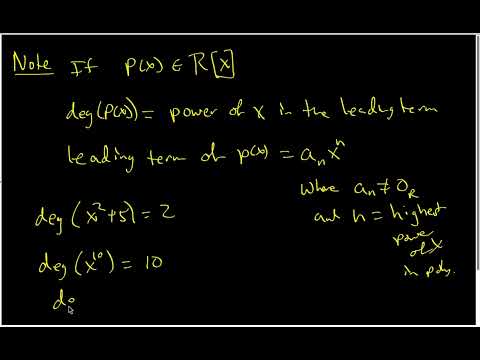 Note If P(x) ∈ R[x]
deg(P(x)) = power of x in the leading term
leading term of p(x) = aₙxⁿ
where aₙ ≠ 0_R
and n = highest
power
of x
in poly.
deg(x²+5) = 2
deg(x¹⁰) = 10
de